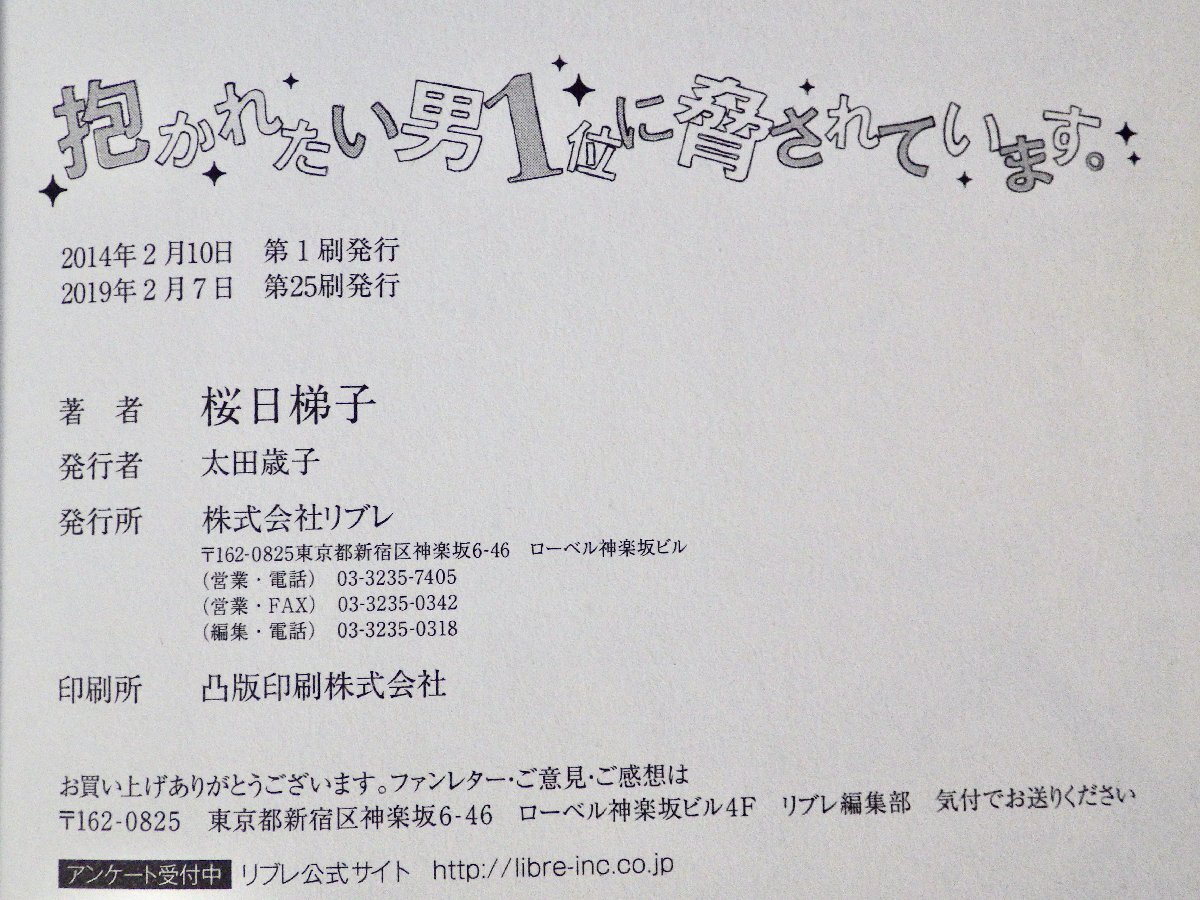 抱かれたい男1位に脅されています。
2014年2月10日　第1刷発行
2019年2月7日　第25刷発行
著　者　桜日梯子
発行者　太田歳子
発行所　株式会社リブレ
〒162-0825東京都新宿区神楽坂6-46　ローベル神楽坂ビル
(営業・電話)　03-3235-7405
(営業・FAX)　03-3235-0342
(編集・電話)　03-3235-0318
印刷所　凸版印刷株式会社
お買い上げありがとうございます。ファンレター・ご意見・ご感想は
〒162-0825　東京都新宿区神楽坂6-46　ローベル神楽坂ビル4F　リブレ編集部　気付でお送りください
アンケート受付中　リブレ公式サイト　http://libre-inc.co.jp